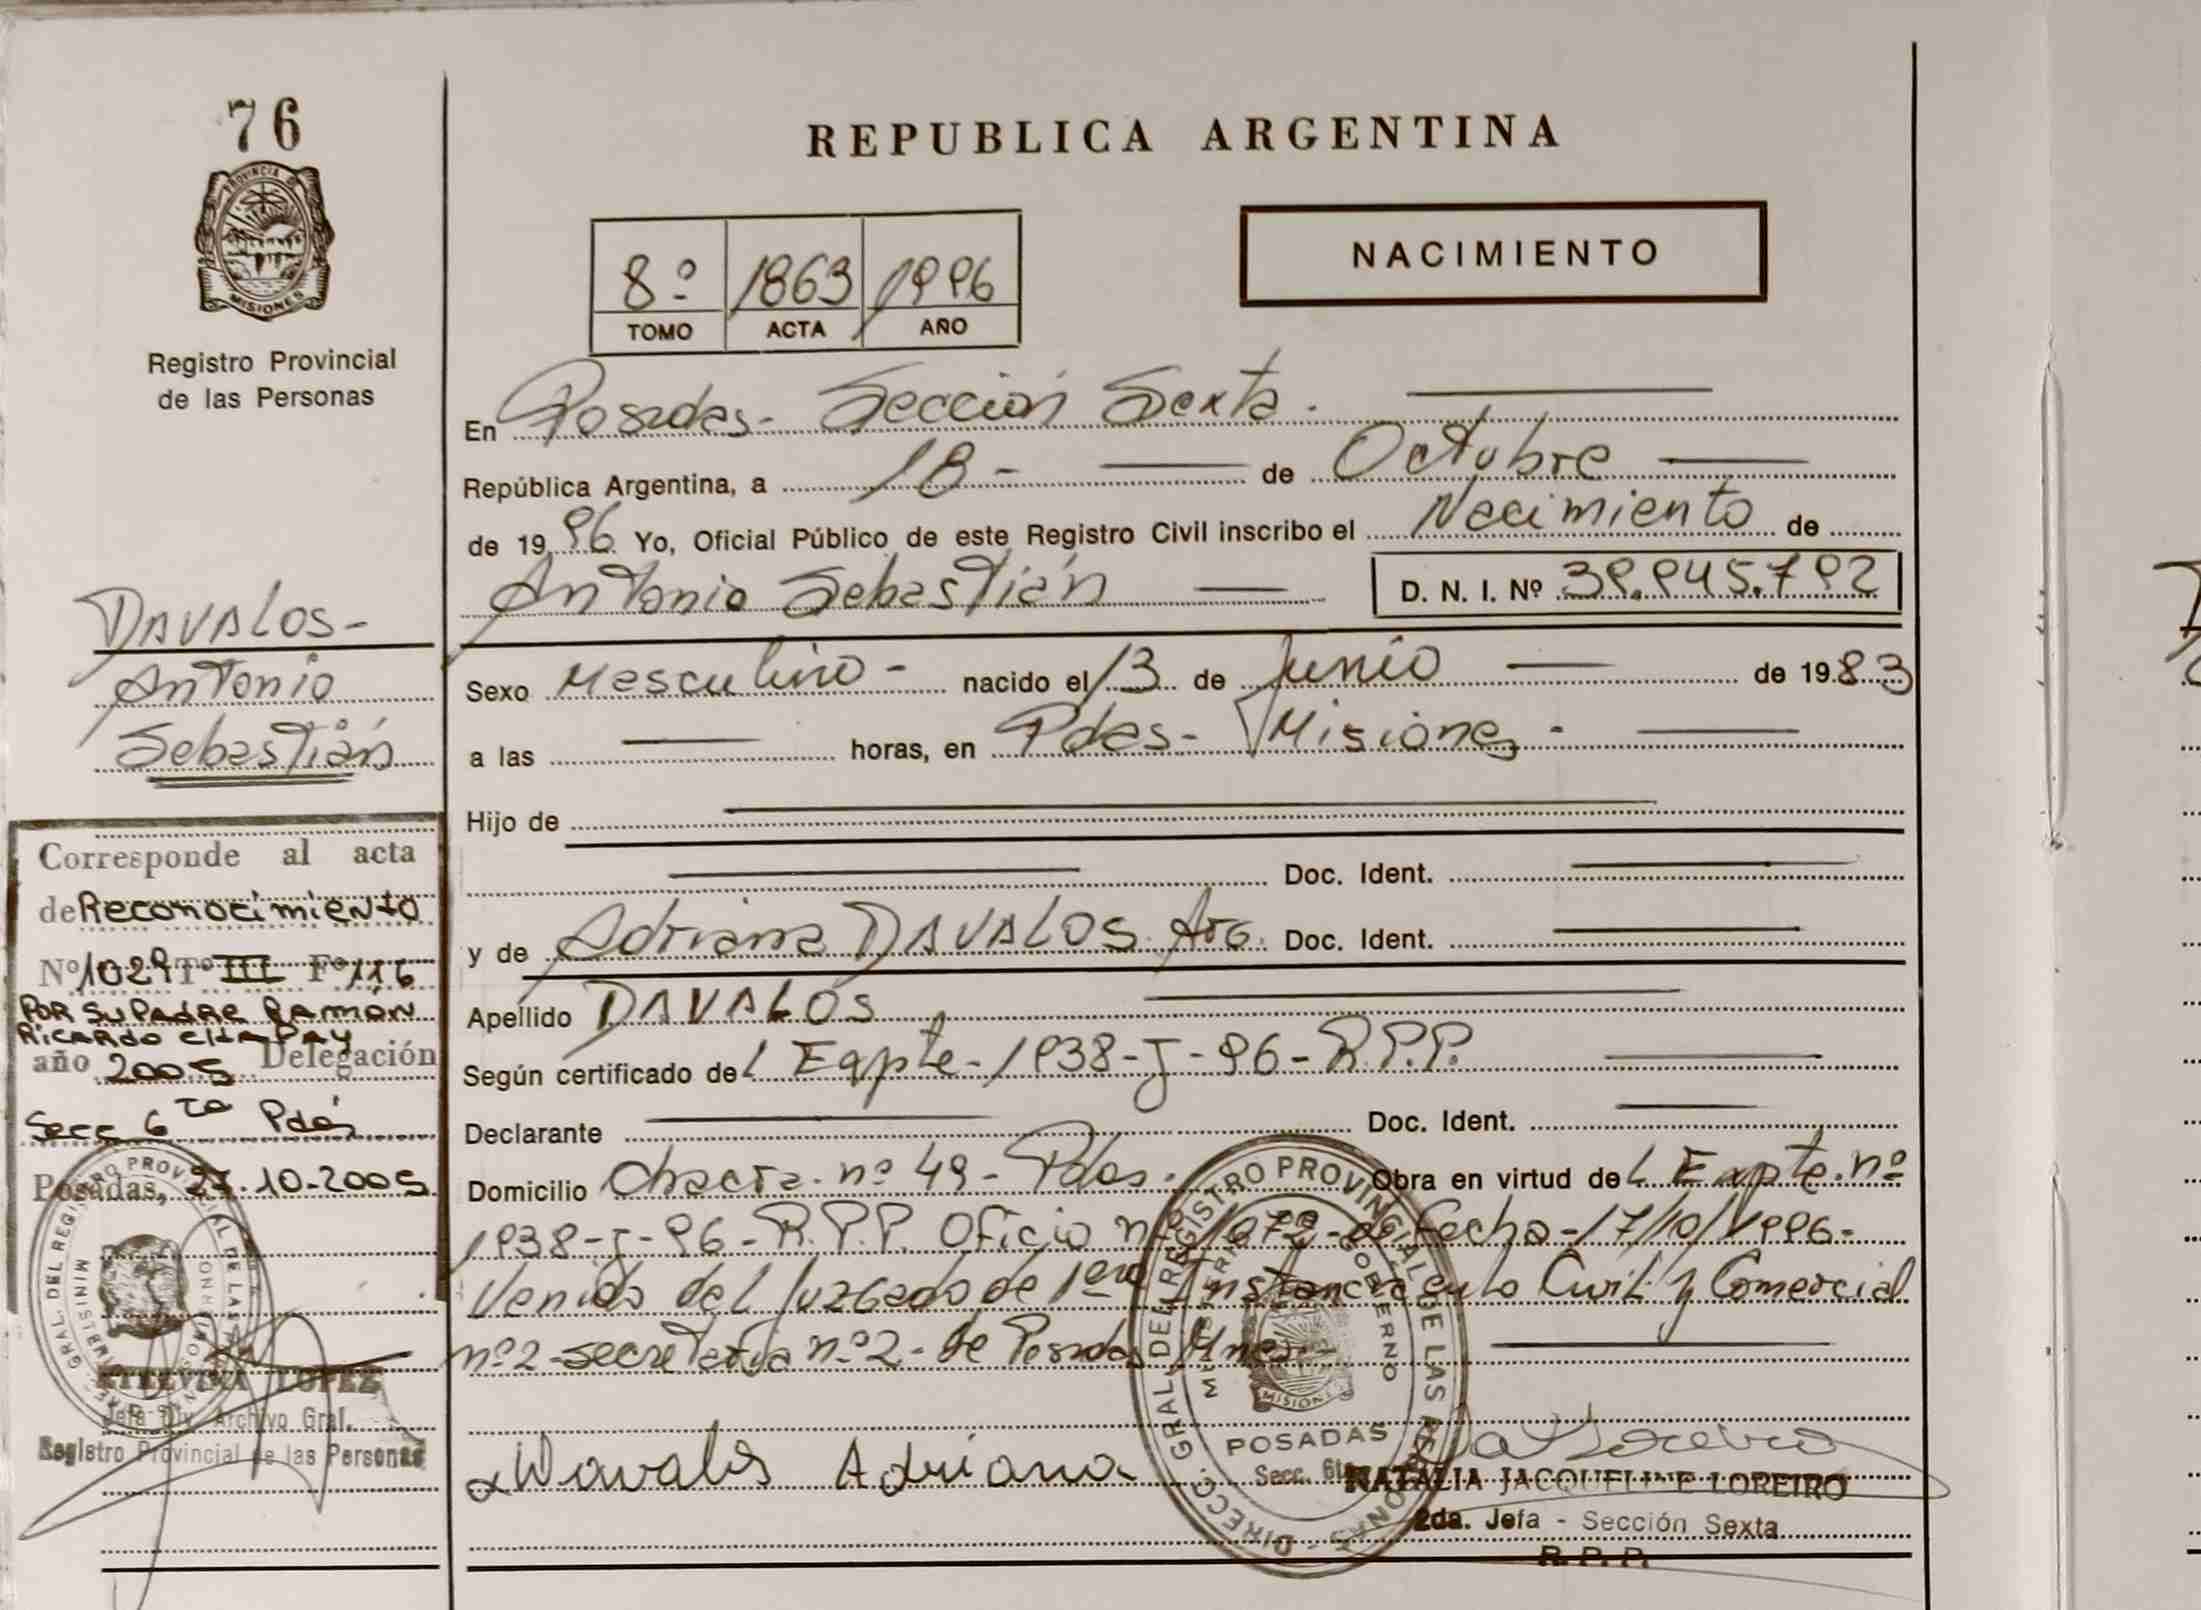 76
PROVINCIA DE
MISIONES
Registro Provincial
de las Personas
DAVALOS-
Antonio
Sebastián
Corresponde al acta
de Reconocimiento
Nº 1029 Tº III Fº 116
POR SU PADRE RAMÓN
RICARDO CHAPAY
año 2005 Delegación
Secc 6 ta Pdas
Posadas, 27.10-2005
LOPEZ
Jefa Div. Archivo Gral.
Registro Provincial de las Personas
REPUBLICA ARGENTINA
NACIMIENTO
8º 1863 1996
TOMO ACTA AÑO
En Posadas- Sección Sexta.
República Argentina, a 18- de Octubre
de 1996 Yo, Oficial Público de este Registro Civil inscribo el Nacimiento de
Antonio Sebastián D. N. I. Nº 39.945.792
Sexo Masculino- nacido el 13 de Junio de 1983
a las horas, en Pdas- Misiones-
Hijo de
Doc. Ident.
y de Adriana DAVALOS. Arg. Doc. Ident.
Apellido DAVALOS
Según certificado del Expte-1938-J-96-R.P.P.
Declarante Doc. Ident.
Domicilio Chacra. nº 49- Pdas. Obra en virtud del Expte. nº
1938-J-96-R.P.P. Oficio nº 1072-de fecha-17/10/1996-
Venido del Juzgado de 1era Instancia en lo Civil y Comercial
nº2-secretaria nº2-de Posadas Mnes-
Davalos Adriana
DIRECC. GRAL. DEL REGISTRO PROVINCIAL DE LAS PERSONAS
GOBIERNO
MISIONES
POSADAS
Secc. 6ta
NATALIA JACQUELINE LOREIRO
2da. Jefa - Sección Sexta
R. P. P.